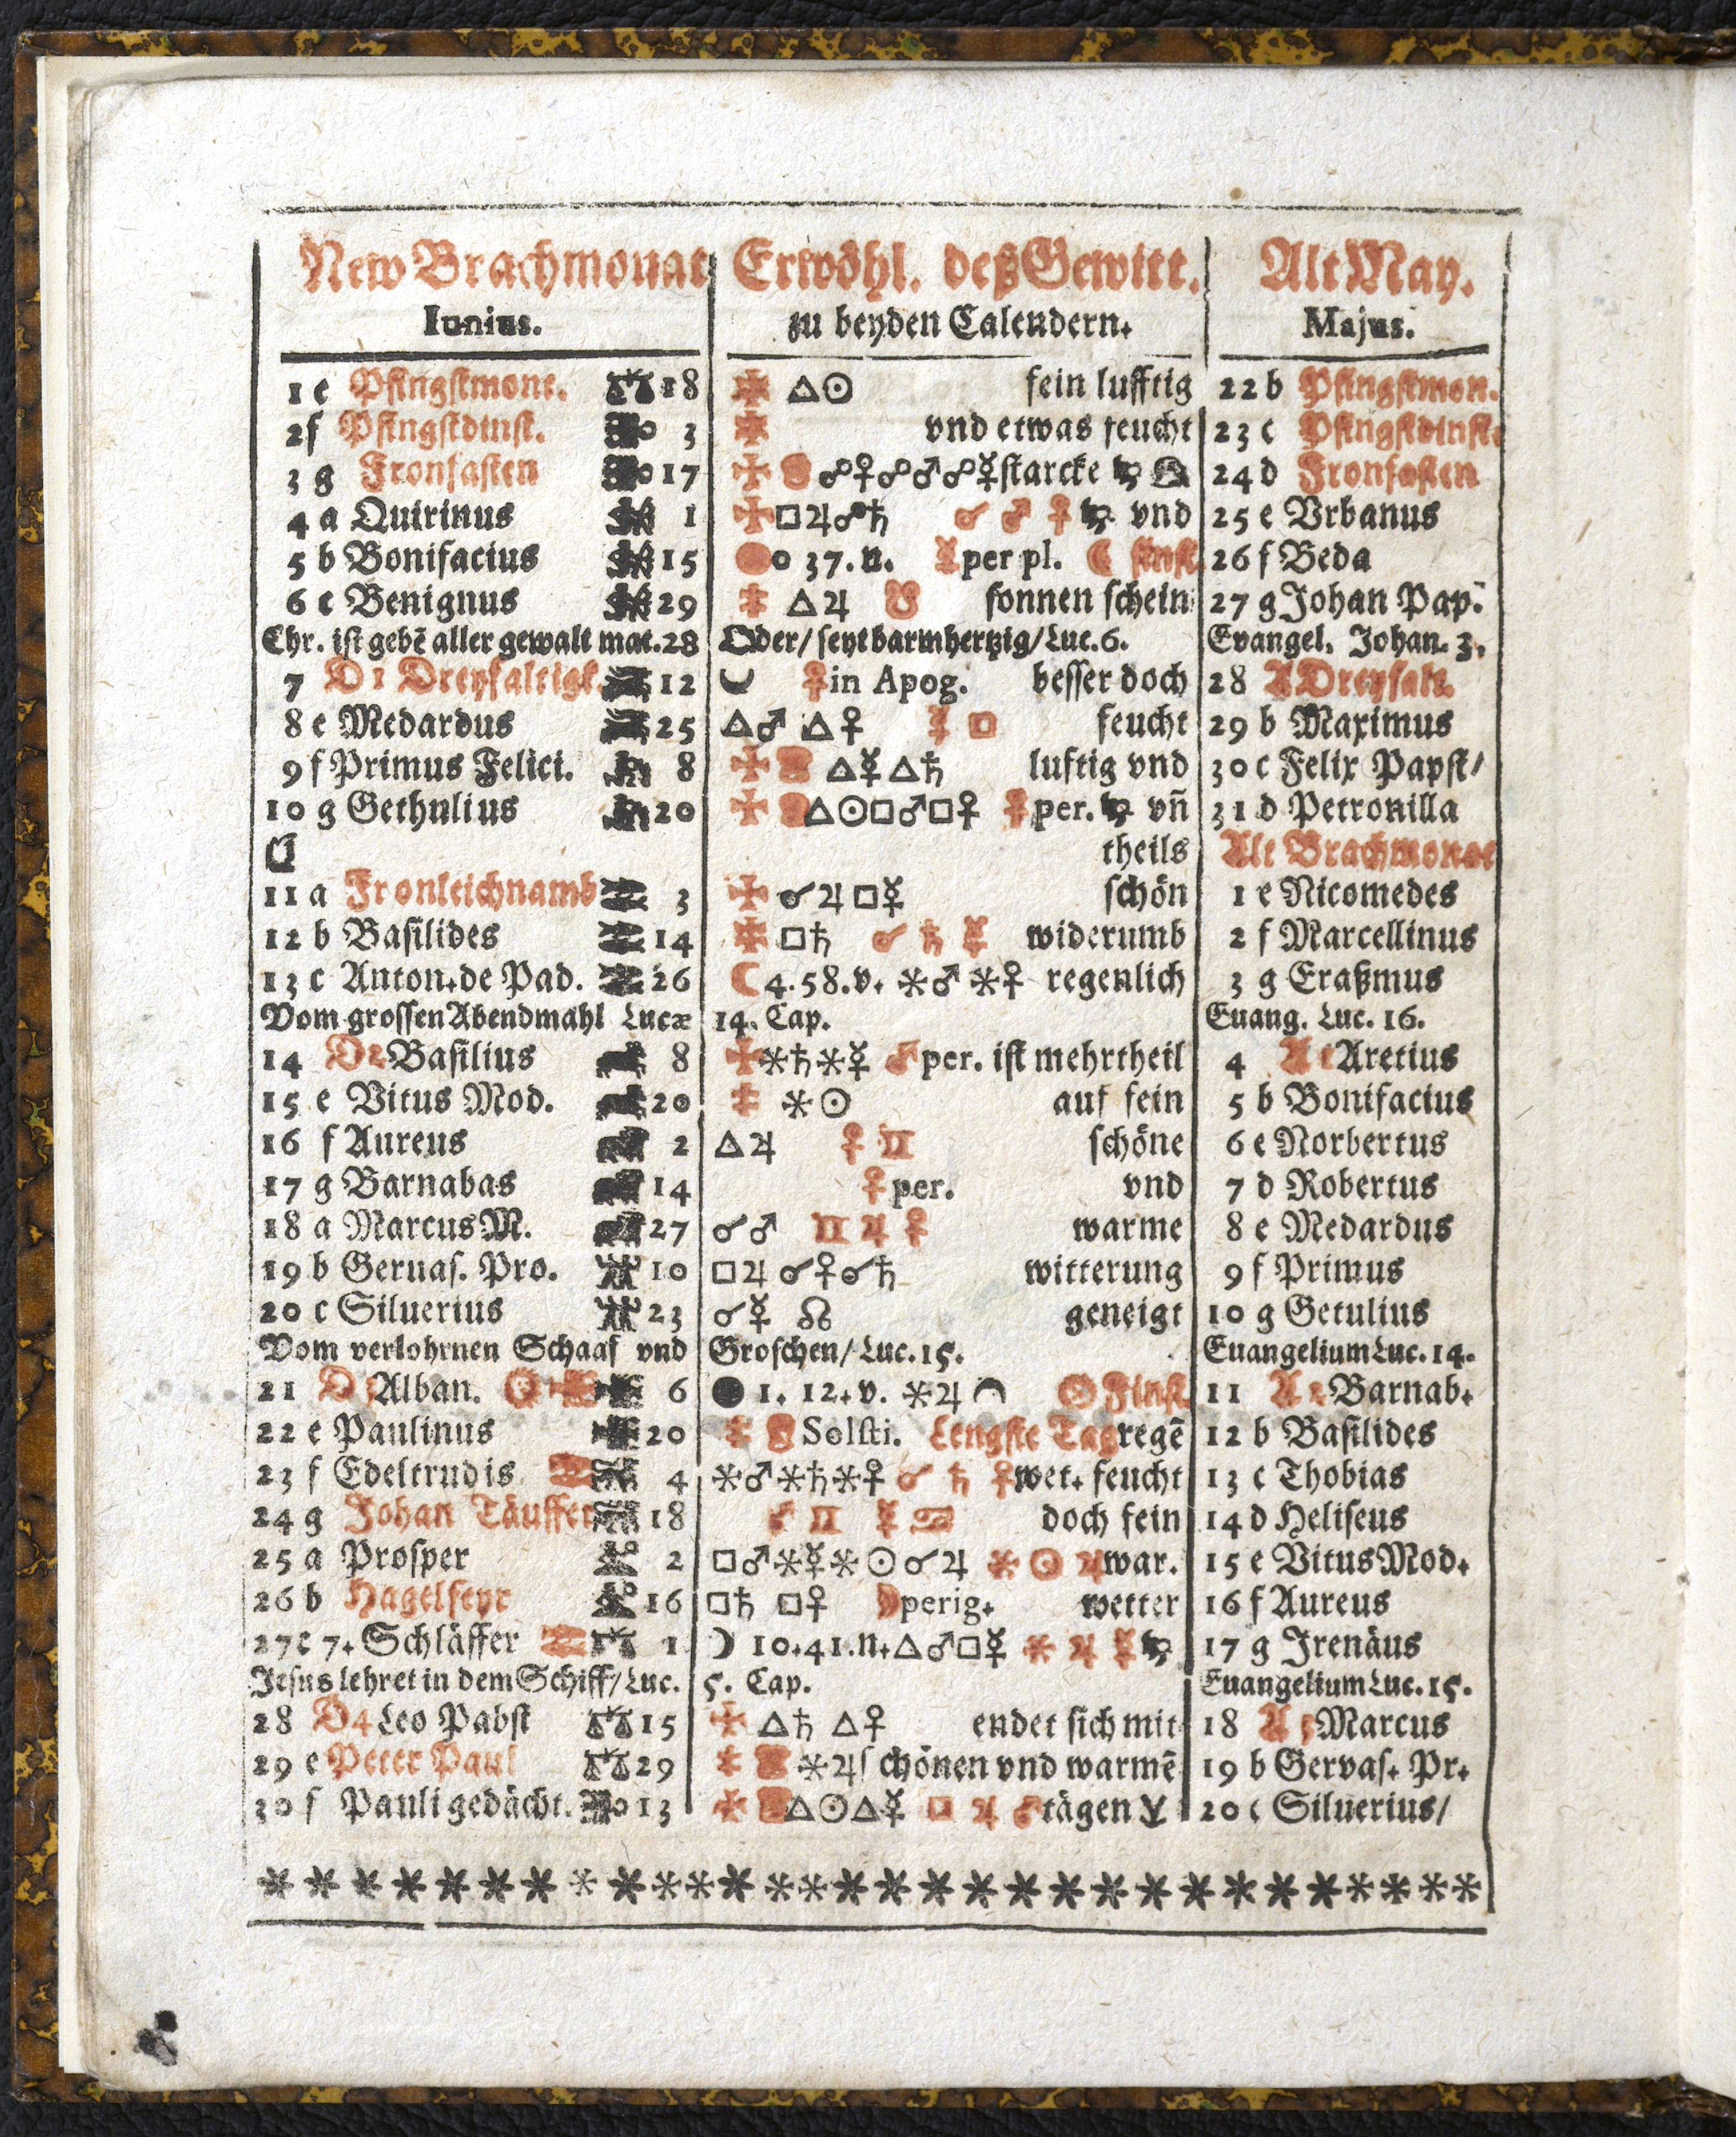 New Brachmonat Erwöhl. deß Gewitt. Alt May.
Iunius. zu beyden Calendern. Majus.
1 e Pfingstmont. 18 △☉ fein lufftig 22 b Pfingstmon.
2 f Pfingstdinst. 3 vnd etwas feucht 23 c Pfingstdinst.
3 g Fronfasten 17 ☍♀☍♂☍☿ starcke 24 d Fronfasten
4 a Quirinus 1 □♃☍♄ ☌ ♂ ♀ vnd 25 e Vrbanus
5 b Bonifacius 15 0 37. n. ☿ per pl. ☾ finst. 26 f Beda
6 c Benignus 29 △♃ ☋ sonnen schein 27 g Johan Pap.
Chr. ist gebē aller gewalt mat. 28 Oder/ seyt barmhertzig/ Luc. 6. Evangel. Johan. 3.
7 D 1 Dreyfaltigk. 12 ♀ in Apog. besser doch 28 A Dreyfalt.
8 e Medardus 25 △♂ △♀ ☿ □ feucht 29 b Maximus
9 f Primus Felici. 8 △☿ △♄ luftig vnd 30 c Felix Papst/
10 g Gethulius 20 △☉□♂□♀ ♀ per. vñ 31 d Petronilla
theils Alt Brachmonat
11 a Fronleichnamb 3 ☌♃ □☿ schön 1 e Nicomedes
12 b Basilides 14 □♄ ☌ ♄ ☿ widerumb 2 f Marcellinus
13 c Anton. de Pad. 26 ☾ 4. 58. v. ⚹♂ ⚹♀ regenlich 3 g Eraßmus
Vom grossen Abendmahl Lucæ 14. Cap. Euang. Luc. 16.
14 D 2 Basilius 8 ⚹♄⚹☿ ♂ per. ist mehrtheil 4 A 1 Aretius
15 e Vitus Mod. 20 ⚹☉ auf fein 5 b Bonifacius
16 f Aureus 2 △♃ ♀ ♊ schöne 6 c Norbertus
17 g Barnabas 14 ♀ per. vnd 7 d Robertus
18 a Marcus M. 27 ☌♂ ♊ ♃ ♀ warme 8 e Medardus
19 b Geruas. Pro. 10 □♃ ☌♀☌♄ witterung 9 f Primus
20 c Siluerius 23 ☌☿ ☊ geneigt 10 g Getulius
Vom verlohrnen Schaaf vnd Groschen/ Luc. 15. Euangelium Luc. 14.
21 D 3 Alban. ☉ 6 ● 1. 12. v. ⚹♃ ☉ Finst. 11 A 2 Barnab.
22 e Paulinus 20 Solsti. Lengste Tag regē 12 b Basilides
23 f Edeltrudis 4 ⚹♂⚹♄⚹♀ ☌ ♄ ♀ wet. feucht 13 c Thobias
24 g Johan Täuffer 18 ♂ ♊ ☿ ♋ doch fein 14 d Heliseus
25 a Prosper 2 □♂⚹☿⚹☉☌♃ ⚹ ☉ ♃ war. 15 e Vitus Mod.
26 b Hagelfeyr 16 □♄ □♀ ☽ perig. wetter 16 f Aureus
27 c 7. Schläffer 1 ☽ 10. 41. n. △♂□☿ ⚹ ♃ ☿ 17 g Jrenäus
Jesus lehret in dem Schiff/ Luc. 5. Cap. Euangelium Luc. 15.
28 D 4 Leo Pabst 15 △♄ △♀ endet sich mit 18 A 3 Marcus
29 e Peter Paul 29 ⚹♃ schönen vnd warmē 19 b Gervas. Pr.
30 f Pauli gedächt. 13 △☉△☿ □ ♃ ♂ tägen 20 c Siluerius/